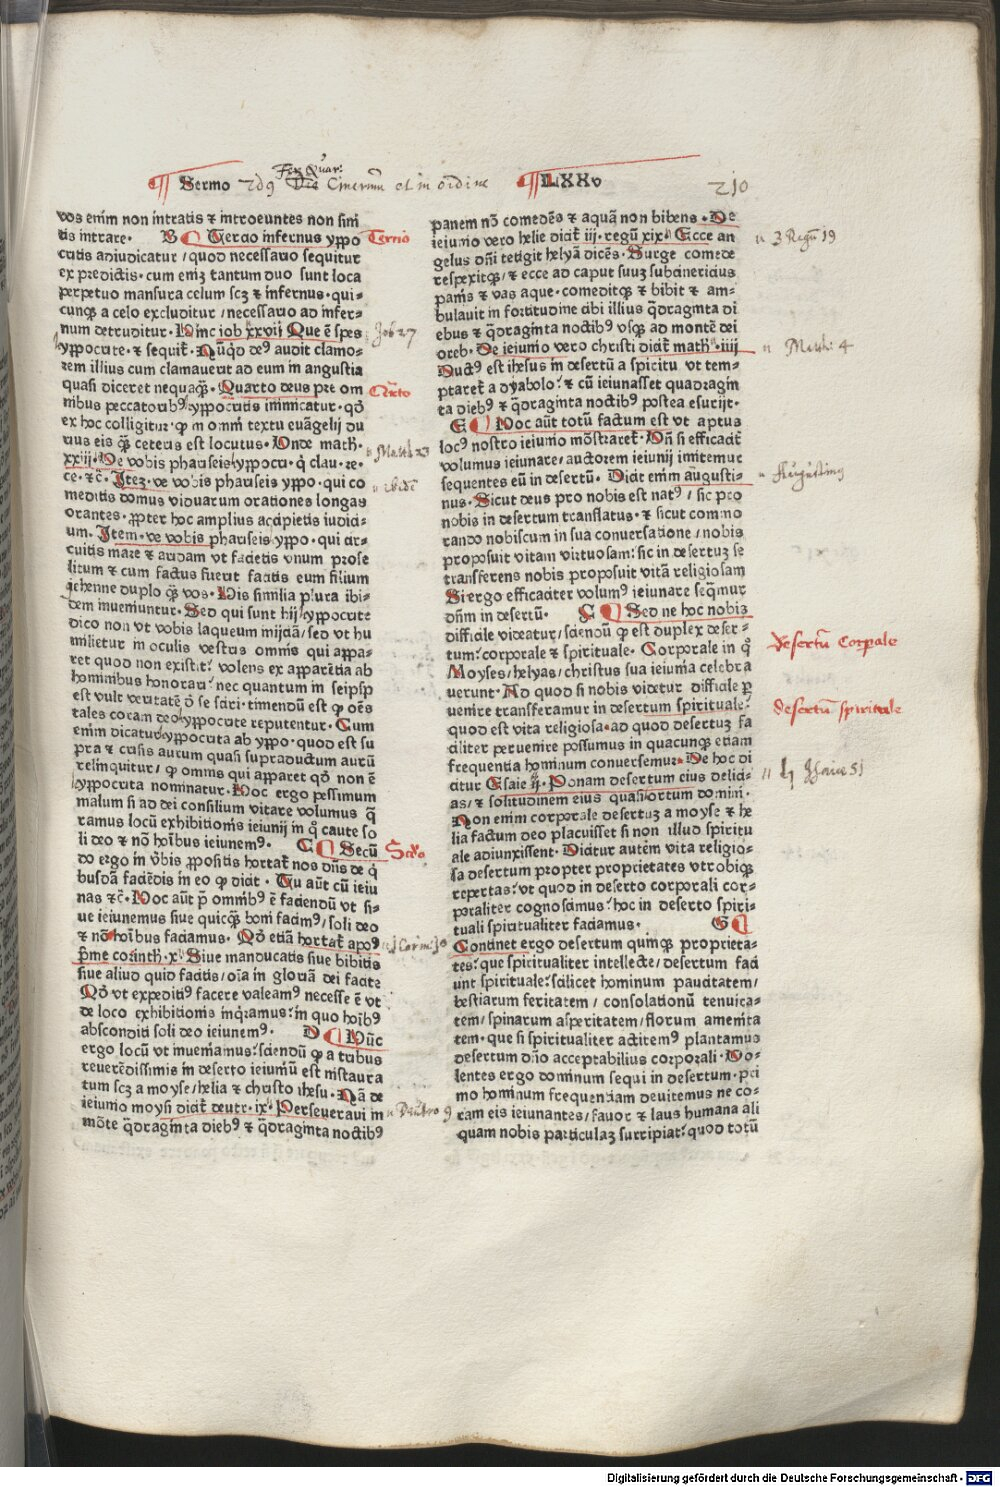 Sermo 2dus Cinerum et in ordine LXXv 210
vos enim non intratis ⁊ introeuntes non sini
tis intrare. B Tercio infernus yppo
critis adiudicatur / quod necessario sequitur
ex predictis. cum enim tantum duo sunt loca
perpetuo mansura celum scꝫ ⁊ infernus. qui-
cunqꝫ a celo excluditur / necessario ad infer-
num detruditur. Hinc iob xxvij Que ē spes
yppocrite. ⁊ sequit̄. Nūqd deꝰ audit clamo-
rem illius cum clamauerit ad eum in angustia
quasi diceret nequaqꝫ. Quarto deus pre om
nibus peccatoribꝰ yppocritis inimicatur. qd̄
ex hoc colligitur. ꝙ in omni textu euāgelij du
rius eis qꝫ ceteris est locutus. Vnde math.
xxiij. Ve vobis pharisei yppocri. q̇ clau. re-
ce. ⁊c̄. Iteꝫ. ve vobis pharisei yppo. qui co
meditis domus viduarum orationes longas
orantes. ꝓpter hoc amplius accipietis iudici-
um. Item. ve vobis pharisei yppo. qui cir-
cuitis mare ⁊ aridam vt faciatis vnum prose
litum ⁊ cum factus fuerit facitis eum filium
gehenne duplo qꝫ vos. His similia plura ibi-
dem inueniuntur. Sed qui sunt hij yppocrite
dico non vt vobis laqueum inijciā / sed vt hu
milietur in oculis vestris omnis qui appa-
ret quod non existit. volens ex apparētia ab
hominibus honorari. nec quantum in seipso
est vult veritatē de se sciri. timendū est ꝙ oēs
tales coram deo yppocrite reputentur. Cum
enim dicatur yppocrita ab yppo. quod est su
pra ⁊ crisis aurum quasi supraductum aurū
relinquitur / ꝙ omnis qui apparet qd̄ non ē
yppocrita nominatur. Hoc ergo pessimum
malum si ad dei consilium vitare volumus q̄
ramus locū exhibitionis ieiunij in q̊ caute so
li deo ⁊ nō hoibus ieiunemꝰ. C Secū
do ergo in vbis ꝓpositis hortat̄ nos dn̄s de q̇
busdā faciēdis in eo ꝙ dicit. Tu aūt cū ieiu
nas ⁊c̄. Hoc aūt p̄ omnibꝰ ē faciendū vt si-
ue ieiunemus siue quicqꝫ boni facimꝰ / soli deo
⁊ nō hoibus faciamus. Qd̄ etiā hortat̄ apoꝰ
prime corinth. x. Siue manducatis siue bibitis
siue aliud quid facitis / oīa in gloriā dei facite
Qd̄ vt expeditiꝰ facere valeamꝰ necesse ē vt
de loco exhibitionis inqramus. in quo hoibꝰ
absconditi soli deo ieiunemꝰ. D Hūc
ergo locū vt inueniamus. sciendū ꝙ a tribus
reuerēdissimis in deserto ieiuniū est instaura
tum scꝫ a moyse / helia ⁊ christo ihesu. Nā de
ieiunio moysi dicit̄ deutr. ix. Perseueraui in
mōte q̄draginta diebꝰ ⁊ q̄draginta noctibꝰ
panem nō comedēs ⁊ aquā non bibens. De
ieiunio vero helie dicit̄ iij. regū xix. Ecce an
gelus dn̄i tetigit helyā dicēs. Surge comede
respexitqꝫ / ⁊ ecce ad caput suuꝫ subcinericius
panis ⁊ vas aque. comeditqꝫ ⁊ bibit ⁊ am-
bulauit in fortitudine cibi illius q̄draginta di
ebus ⁊ q̄draginta noctibꝰ vsqꝫ ad montē dei
oreb. De ieiunio vero christi dicit̄ math. iiij
Ductꝰ est ihesus in desertū a spiritu vt tem-
ptaret̄ a dyabolo. ⁊ cū ieiunasset quadragin
ta diebꝰ ⁊ q̄draginta noctibꝰ postea esurijt.
E Hoc aūt totū factum est vt aptus
locꝰ nostro ieiunio mōstraret̄. Vn̄ si efficacit̄
volumus ieiunare / auctorem ieiunij imitemur
sequentes eū in desertū. Dicit enim augusti-
nus. Sicut deus pro nobis est natꝰ / sic pro
nobis in desertum translatus. ⁊ sicut commo
rando nobiscum in sua conuersatione / nobis
proposuit vitam virtuosam: sic in desertuꝫ se
transferens nobis proposuit vitā religiosam
Si ergo efficaciter volumꝰ ieiunare seqmur
dn̄m in desertū. F Sed ne hoc nobis
difficile videatur / sciendū ꝙ est duplex deser-
tum. corporale ⁊ spirituale. Corporale in q̊
Moyses / helyas / christus sua ieiunia celebra
uerunt. Ad quod si nobis videtur difficile ꝑ
uenire transferamur in desertum spirituale.
quod est vita religiosa. ad quod desertuꝫ fa
ciliter peruenire possumus in quacunqꝫ etiam
frequentia hominum conuersemur. De hoc di
citur Esaie lj. Ponam desertum eius delici-
as / ⁊ solitudinem eius quasi ortum domini.
Non enim corporale desertuꝫ a moyse ⁊ he
lia factum deo placuisset si non illud spiritu
ale adiunxissent. Dicitur autem vita religio-
sa desertum propter proprietates vtrobiqꝫ
repertas. vt quod in deserto corporali cor-
poraliter cognoscimus. hoc in deserto spiri-
tuali spiritualiter faciamus. G
Continet ergo desertum quinqꝫ proprieta-
tes. que spiritualiter intellecte / desertum faci
unt spirituale. scilicet hominum paucitatem /
bestiarum feritatem / consolationū tenuita-
tem / spinarum asperitatem / florum amenita
tem. que si spiritualiter acciteimꝰ plantamus
desertum dn̄o acceptabilius corporali. Vo-
lentes ergo dominum sequi in desertum. pri
mo hominum frequentiam deuitemus ne co-
ram eis ieiunantes / fauor ⁊ laus humana ali
quam nobis particulaꝫ surripiat. quod totū
Tercio
Job 27
Math 23
ibidē
1 Corin: 10
Deutro 9
3 Regū 19
Math: 4
Augustinus
Desertū Corpale
desertū spirituale
Isaie 51
Digitalisierung gefördert durch die Deutsche Forschungsgemeinschaft - DFG